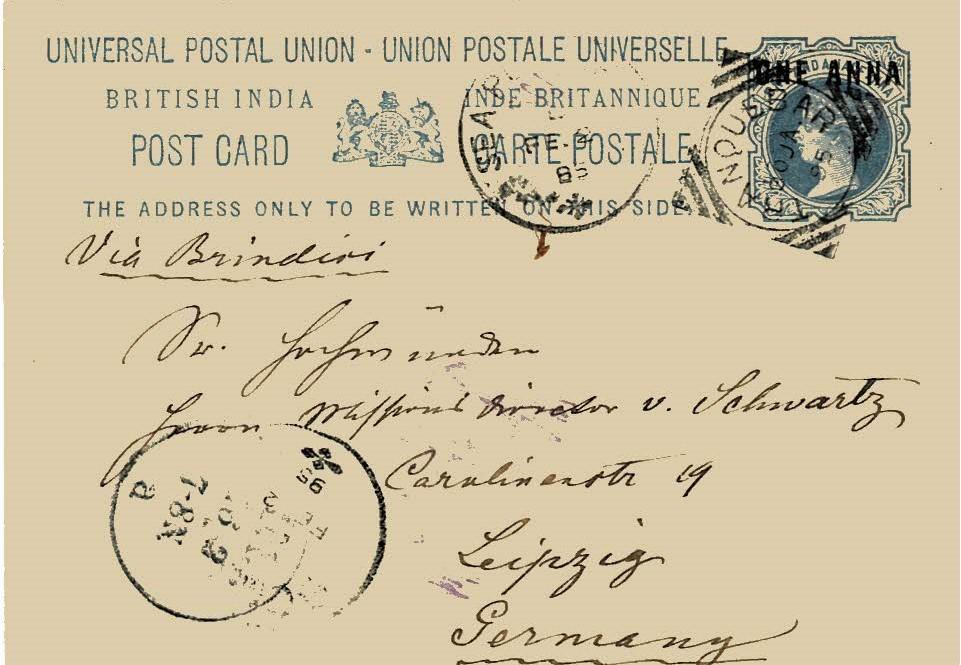 UNIVERSAL POSTAL UNION - UNION POSTALE UNIVERSELLE
BRITISH INDIA INDE BRITANNIQUE
POST CARD CARTE POSTALE
THE ADDRESS ONLY TO BE WRITTEN ON THIS SIDE.
ONE ANNA
SEA
TRANQUEBAR
JA
95
Via Brindisi
Sr. Hochwürden
Herrn Missions director v. Schwartz
Carolinenstr 19
Leipzig
Germany
95